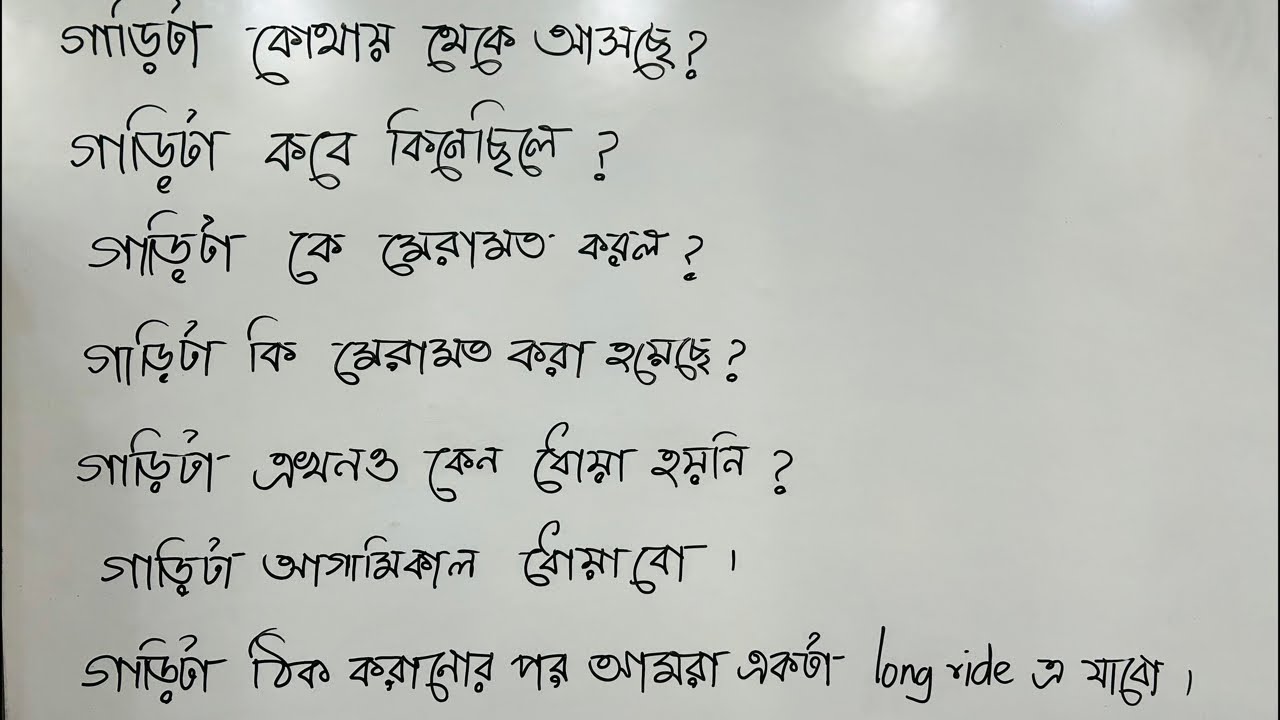 গাড়িটা কোথায় থেকে আসছে?
গাড়িটা কবে কিনেছিলে ?
গাড়িটা কে মেরামত করল ?
গাড়িটা কি মেরামত করা হয়েছে?
গাড়িটা এখনও কেন ধোয়া হয়নি ?
গাড়িটা আগামিকাল ধোয়াবো ।
গাড়িটা ঠিক করানোর পর আমরা একটা long ride এ যাবো ।